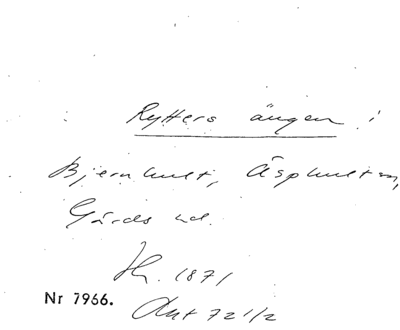 Ryttersängen i
Bjernhult, Äsphult sn,
Gärds hd.
Hr. 1871
Nr 7966.
Ant 72 1/2